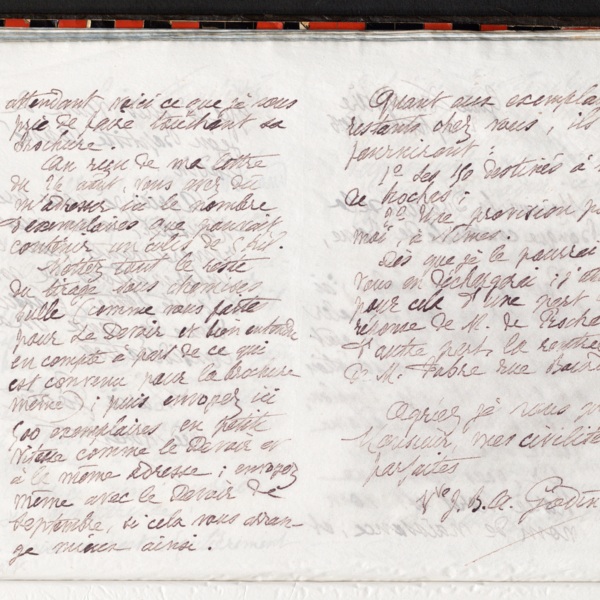 attendant voici ce que je vous
prie de faire touchant sa
brochure.
Au reçu de ma lettre
du 24 août, vous avez dû
m'adresser ici le nombre
d'exemplaires que pouvait
contenir un colis de
Mettez tout le reste
du tirage sous chemises
bulle comme vous faites
pour Le Devoir et bien entendu
en compte à part de ce qui
est convenu pour la brochure
même ; puis envoyez ici
500 exemplaires en petite
vitesse comme le Devoir et
à la même adresse ; envoyez
même avec le Devoir de
septembre, si cela vous arran-
ge mieux ainsi.
Quant aux exemplai
restants chez vous, ils
fourniront :
1o Les 150 destinés à
de Poches ;
2o Une provision p
moi, à Nîmes.
Dès que je le pourrai
vous en déchargerai ; j'at
pour cela d'une part
réponse de M. de
d'autre part, la rentrée
M. Fabre rue
Agréez je vous pr
Monsieur, mes civilité
parfaites
Vve J. B. A. Godin